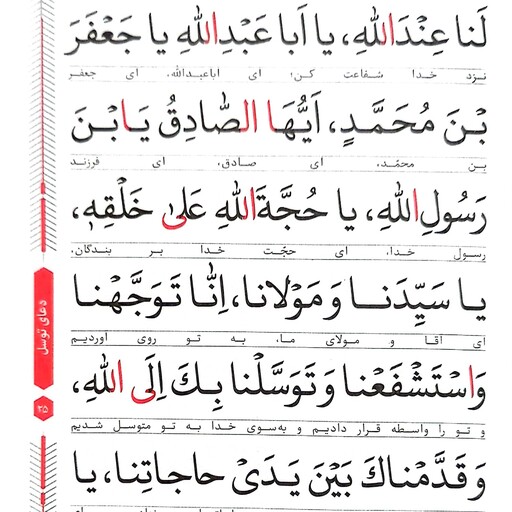 لَنا عِنْدَاللهِ، يا اَبا عَبْدِاللهِ يا جَعْفَرَ
نزد خدا شفاعت کن؛ ای اباعبدالله، ای جعفر
بْنَ مُحَمَّدٍ، اَيُّهَا الصّادِقُ يَابْنَ
بن محمّد، ای صادق، ای فرزند
رَسُولِ اللهِ، يا حُجَّةَ اللهِ عَلىٰ خَلْقِهٖ،
رسول خدا، ای حجّت خدا بر بندگان،
يا سَيِّدَنا وَ مَوْلانا، اِنّا تَوَجَّهْنا
ای آقا و مولای ما، به تو روی آوردیم
وَاسْتَشْفَعْنا وَ تَوَسَّلْنا بِكَ اِلَى اللهِ،
و تو را واسطه قرار دادیم و به‌سوی خدا به تو متوسل شدیم
وَ قَدَّمْناكَ بَيْنَ يَدَىْ حاجاتِنا، يا
دعای توسل